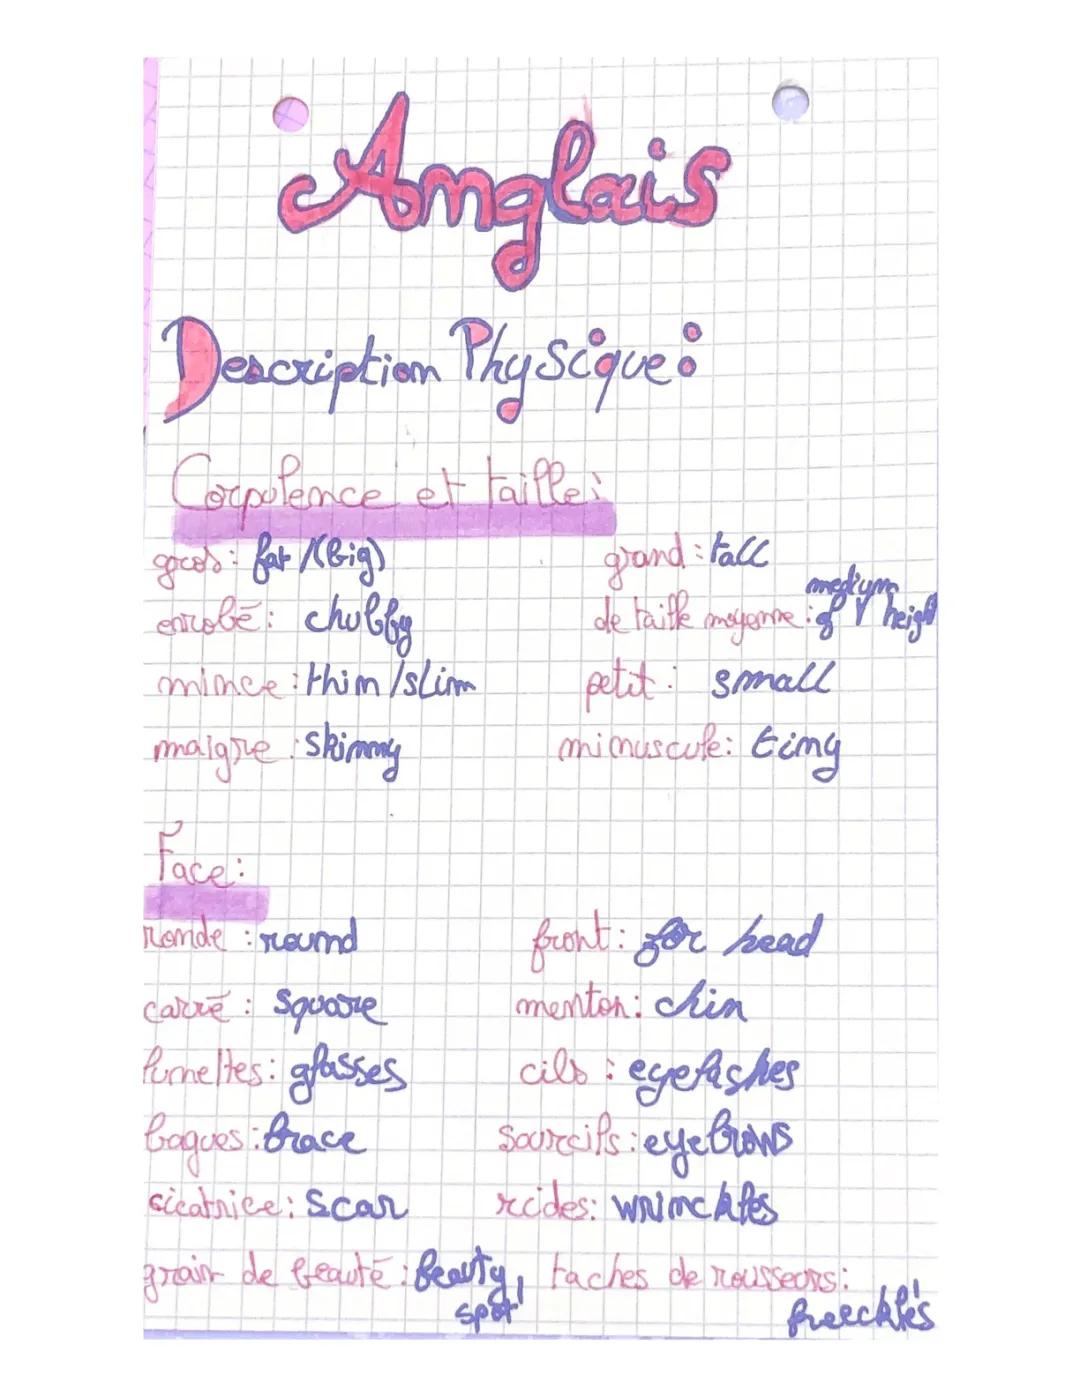 Anglais
Description Physique :
Corpulence et taille :
gros : fat /(big)
grand : tall
enrobé : chubby
de taille moyenne : of medium height
mince : thin/slim
petit : small
maigre : skinny
minuscule : tiny
Face :
ronde : round
front : for head
carré : square
menton : chin
lunettes : glasses
cils : eyelashes
bagues : brace
sourcils : eyebrows
cicatrice : scar
rides : wrinckles
grain de beauté : Beauty spot
taches de rousseurs :
freeckles